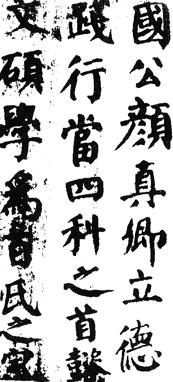 國公顔真卿立德
踐行當四科之首懿
文碩學為百氏之宗